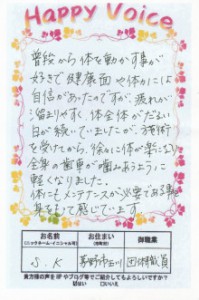 Happy Voice
普段から体を動かす事が
好きで健康面や体力には
自信があったのですが、疲れが
溜まりやすく、体全体がだるい
日が続いていましたが、施術
を受けてから、徐々に体が楽になり
全身の歯車が噛みあうように
軽くなりました。
体にもメンテナンスが必要である事を
身をもて感じています。
お名前
(ニックネーム・イニシャル可)
お住まい
(市町村)
御職業
S.K
茅野市玉川
団体職員
貴方様の声をHPやブログ等でご紹介してもよろしいですか?
はい
いいえ